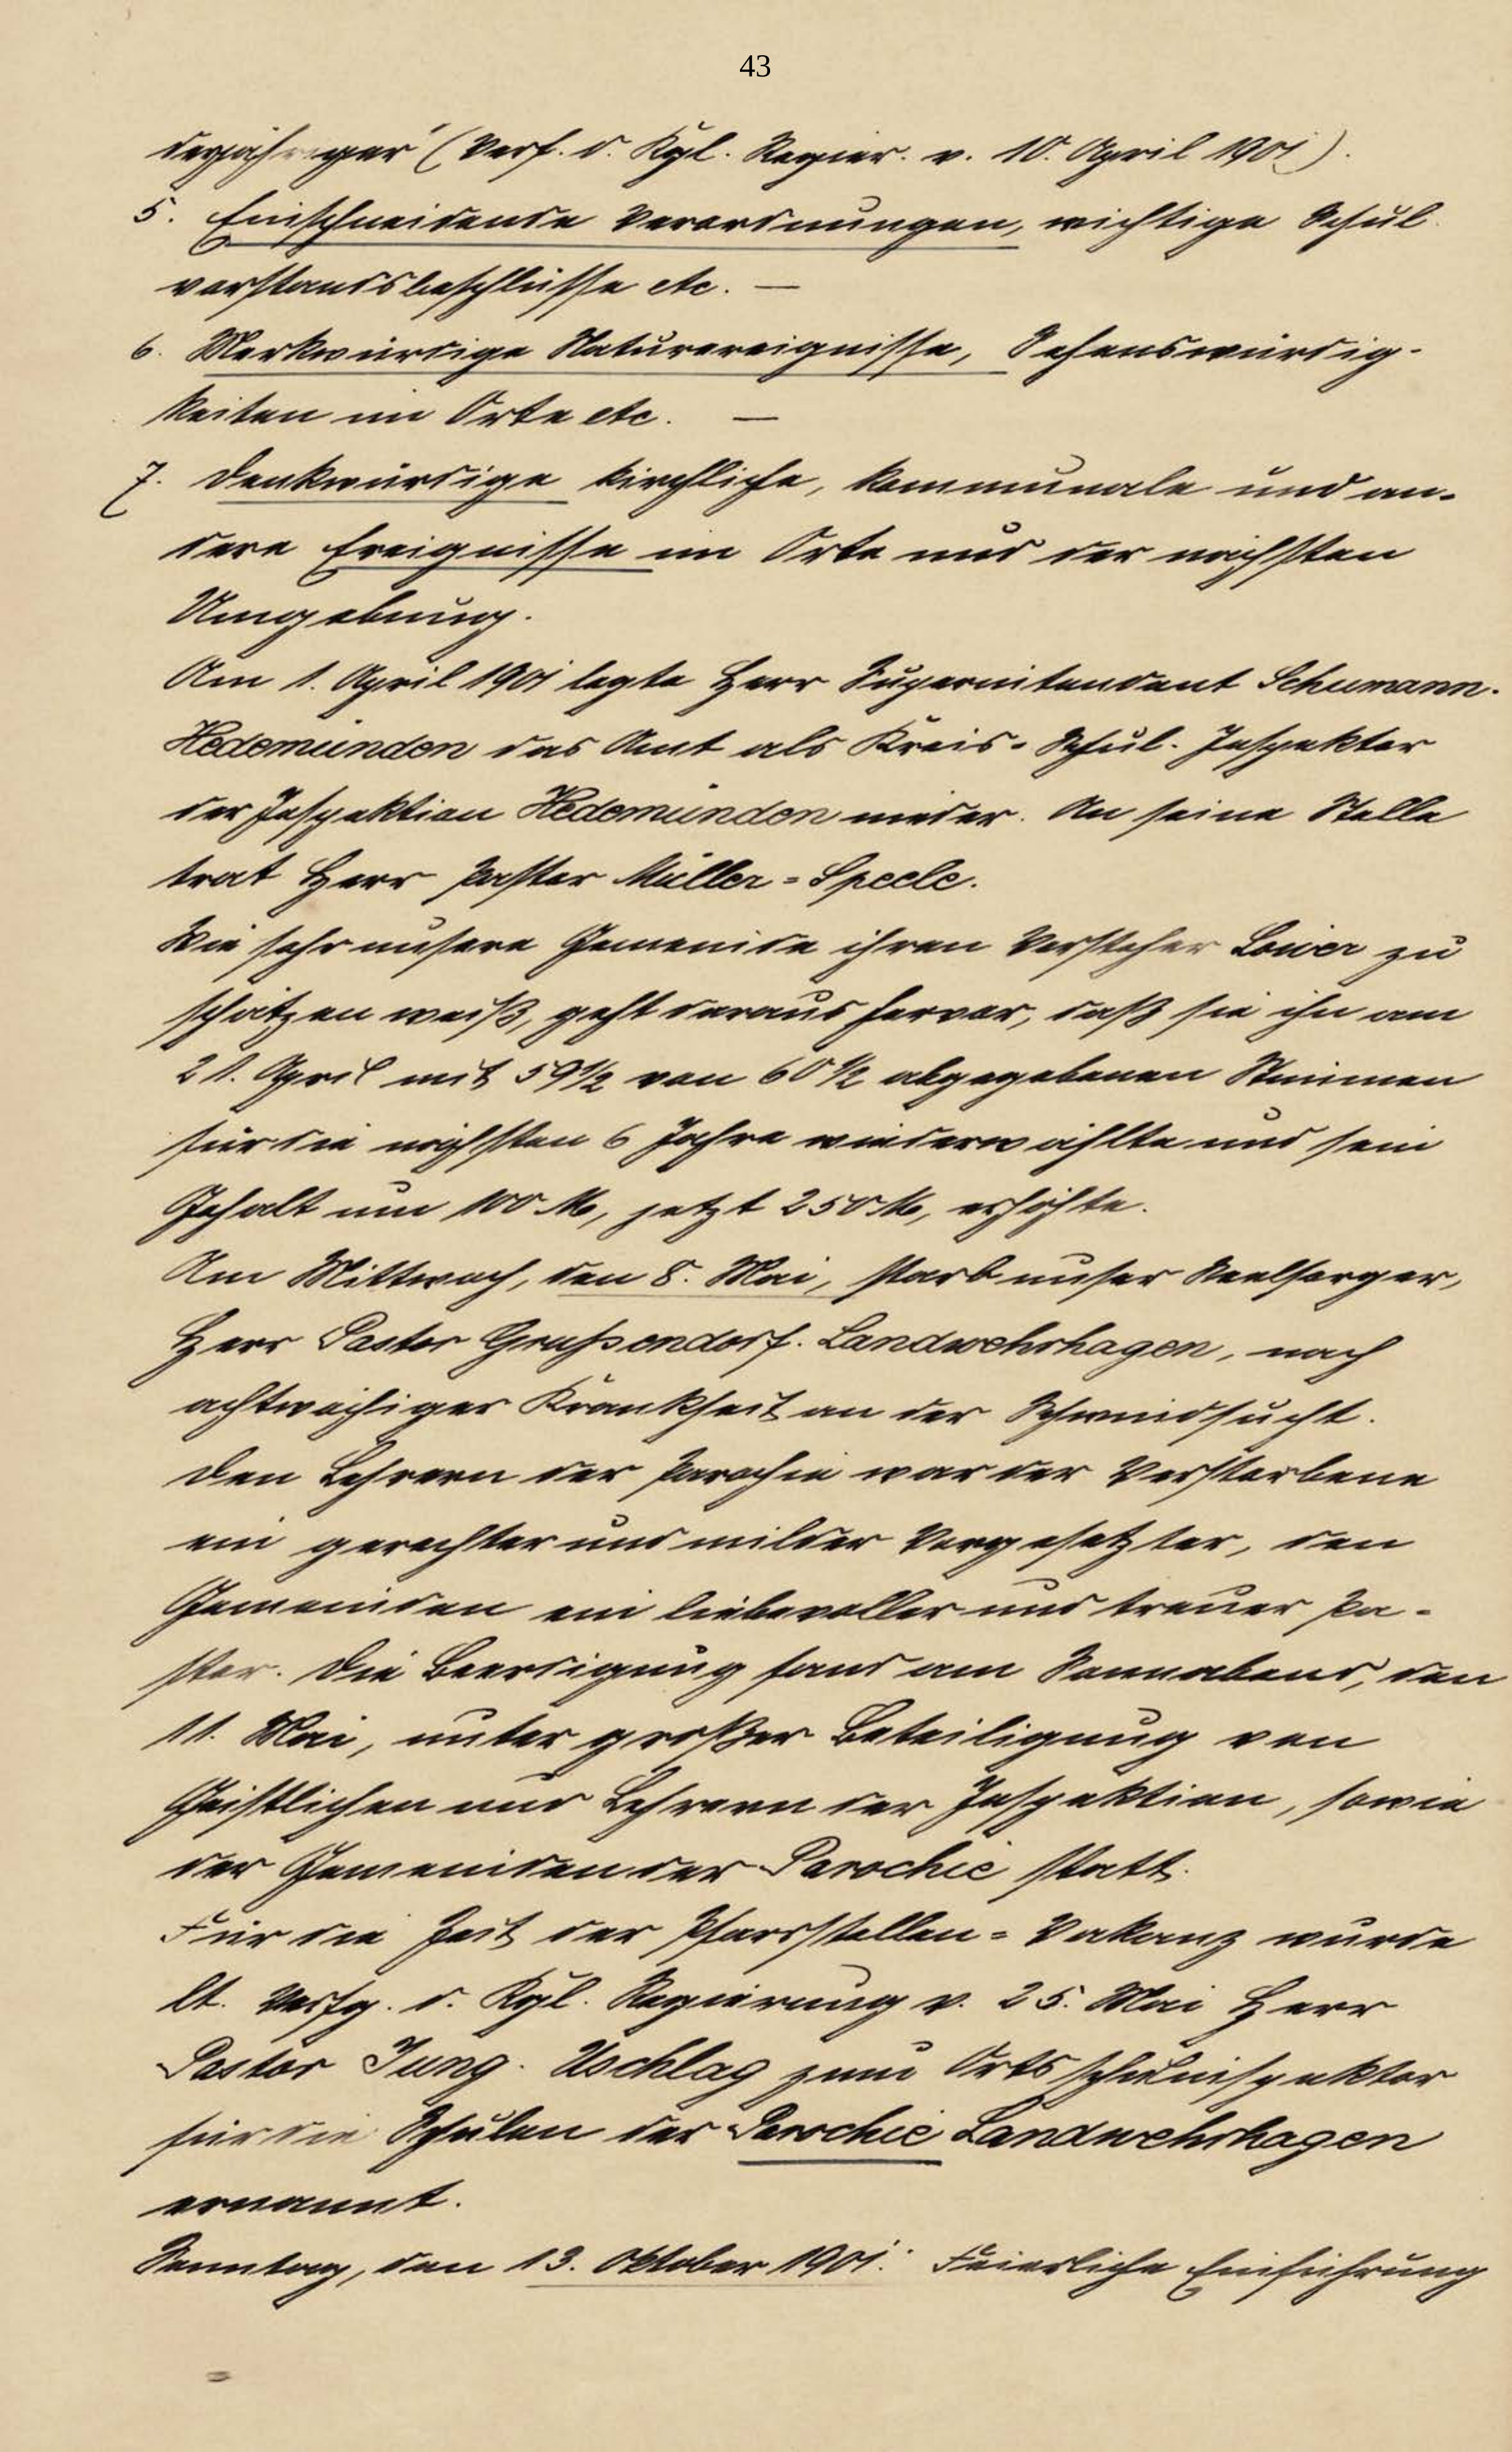 43
derjähriger" (Verf. d. Kgl. Regier. v. 10. April 1901).
5. Einschneidende Verordnungen, wichtige Schul-
vorstandsbeschlüsse etc. —
6. Merkwürdige Naturereignisse, Sehenswürdig-
keiten im Orte etc. —
7. Denkwürdige kirchliche, kommunale und an-
dere Ereignisse im Orte und der nächsten
Umgebung.
Am 1. April 1901 legte Herr Superintendent Schumann-
Hedemünden das Amt als Kreis-Schul-Inspektor
der Inspektion Hedemünden nieder. An seine Stelle
trat Herr Pastor Müller-Speele.
Wie sehr unsere Gemeinde ihren Vorsteher zu
schätzen weiß, geht daraus hervor, daß sie ihn am
21. April mit 59½ von 60½ abgegebenen Stimmen
für die nächsten 6 Jahre wiederwählte und sein
Gehalt um 100 M, jetzt 250 M, erhöhte.
Am Mittwoch, den 8. Mai, starb unser Seelsorger,
Herr Pastor Grußendorf-Landwehrhagen, nach
achtwöchiger Krankheit an der Schwindsucht.
Den Lehrern der Parochie war der Verstorbene
ein gerechter und milder Vorgesetzter, den
Gemeinden ein liebevoller und treuer Pa-
stor. Die Beerdigung fand am Sonnabend, den
11. Mai, unter großer Beteiligung von
Geistlichen und Lehrern der Inspektion, sowie
der Gemeinden der Parochie statt.
Für die Zeit der Pfarrstellen-Vakanz wurde
lt. Verfg. d. Kgl. Regierung v. 25. Mai Herr
Pastor Jung-Uschlag zum Ortsschulinspektor
für die Schulen der Parochie Landwehrhagen
ernannt.
Sonntag, den 13. Oktober 1901: Feierliche Einführung